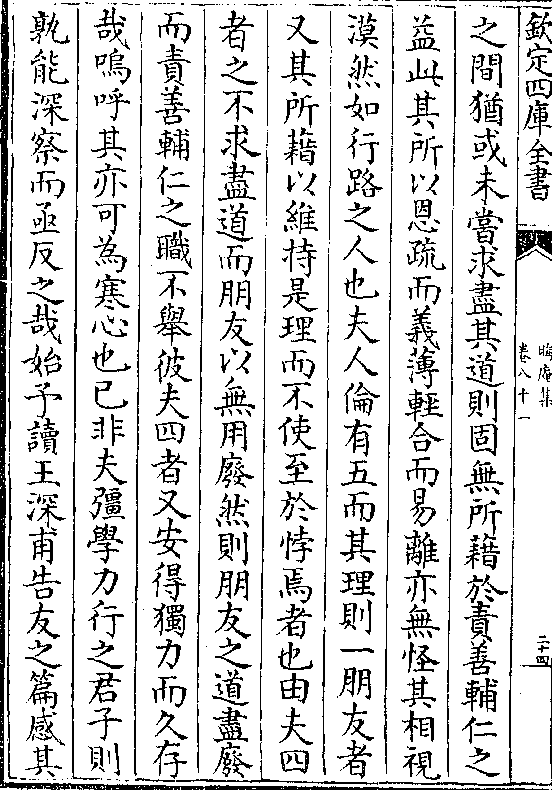 欽定四庫全書
晦庵集
卷八十一
二十四
之間猶或未嘗求盡其道則固無所藉於責善輔仁之
益此其所以恩疏而義薄輕合而易離亦無怪其相視
漠然如行路之人也夫人倫有五而其理則一朋友者
又其所藉以維持是理而不使至於悖焉者也由夫四
者之不求盡道而朋友以無用廢然則朋友之道盡廢
而責善輔仁之職不舉彼夫四者又安得獨力而久存
哉嗚呼其亦可為寒心也已非夫彊學力行之君子則
孰能深察而亟反之哉始予讀王深甫告友之篇感其